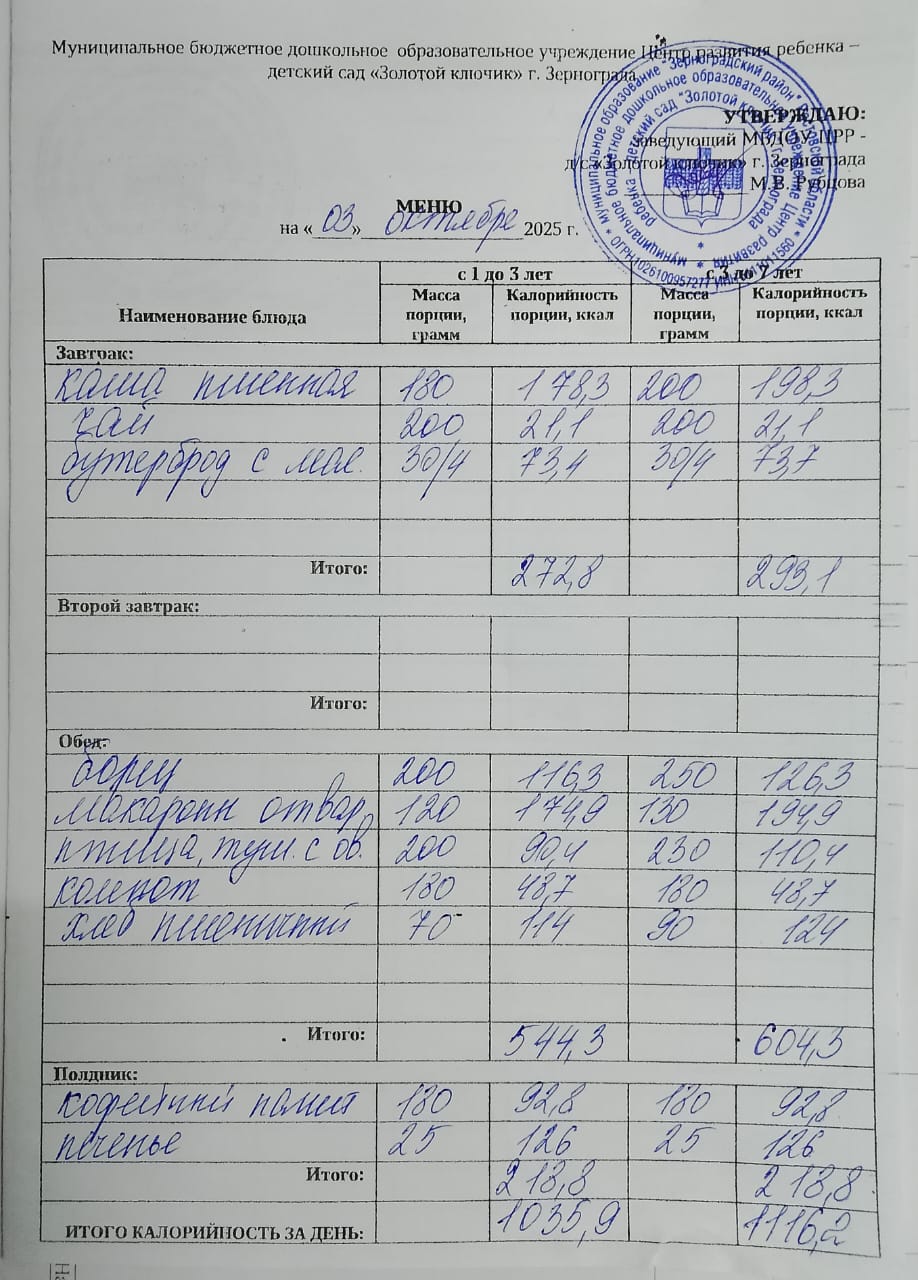 Муниципальное бюджетное дошкольное образовательное учреждение Центр развития ребенка –
детский сад «Золотой ключик» г. Зернограда
УТВЕРЖДАЮ:
Заведующий МБДОУ ЦРР -
д/с «Золотой ключик» г. Зернограда
М.В. Рубцова
МЕНЮ
на «03» октября 2025 г.
Наименование блюда с 1 до 3 лет с 3 до 7 лет
Масса порции, грамм Калорийность порции, ккал Масса порции, грамм Калорийность порции, ккал
Завтрак:
каша пшенная 180 178,3 200 198,3
чай 200 21,1 200 21,1
бутерброд с мас. 30/4 73,4 30/4 73,7
Итого: 272,8 293,1
Второй завтрак:
Итого:
Обед:
борщ 200 116,3 250 126,3
макароны отвар, 120 174,9 130 194,9
птица, туш. с ов. 200 90,4 230 110,4
компот 180 48,7 180 48,7
хлеб пшеничный 70 114 90 124
Итого: 544,3 604,3
Полдник:
кофейный напит 180 92,8 180 92,8
печенье 25 126 25 126
Итого: 218,8 218,8
ИТОГО КАЛОРИЙНОСТЬ ЗА ДЕНЬ: 1035,9 1116,2